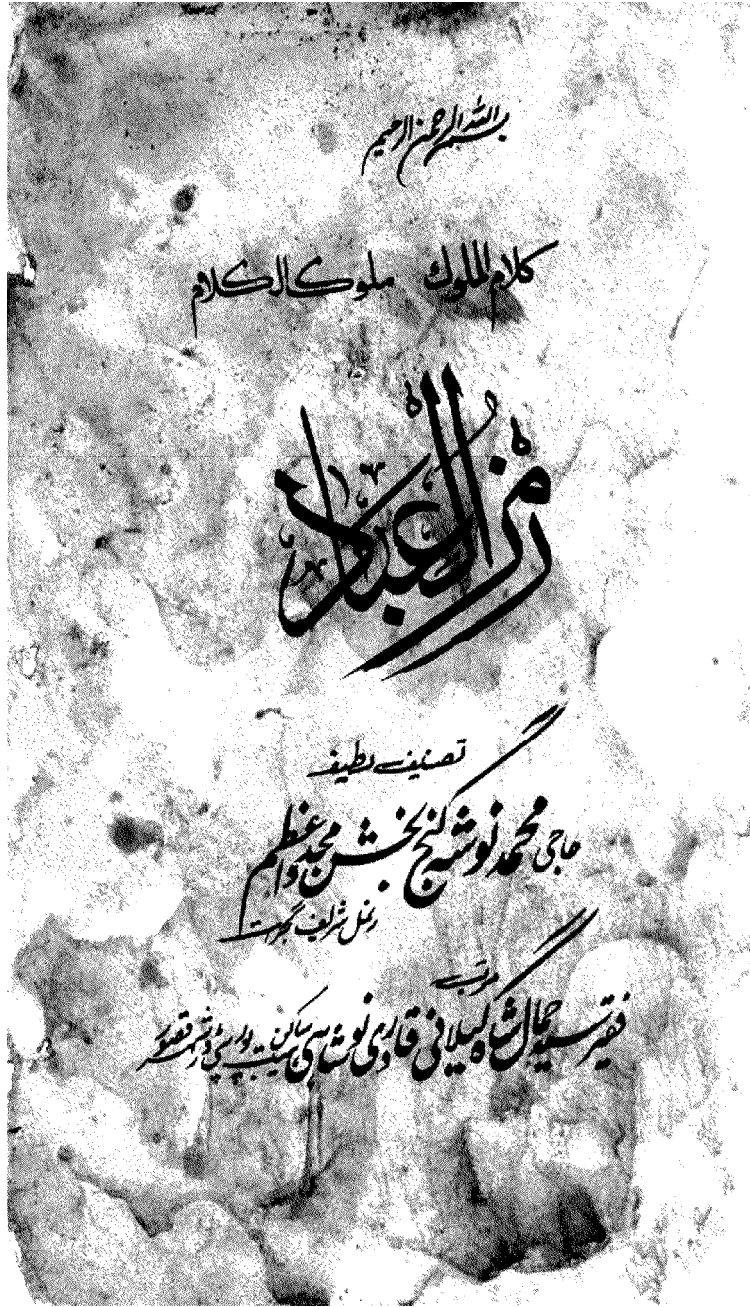 بسم الله الرحمن الرحيم
كلام الملوك ملوك الكلام
رمز العباد
تصنیف لطیف
حاجی محمد نوشہ گنج بخش مجدد اعظم
رنمل شریف گجرات
مرتب
فقیر سید جمال شاہ گیلانی قادری نوشاہی ساکن